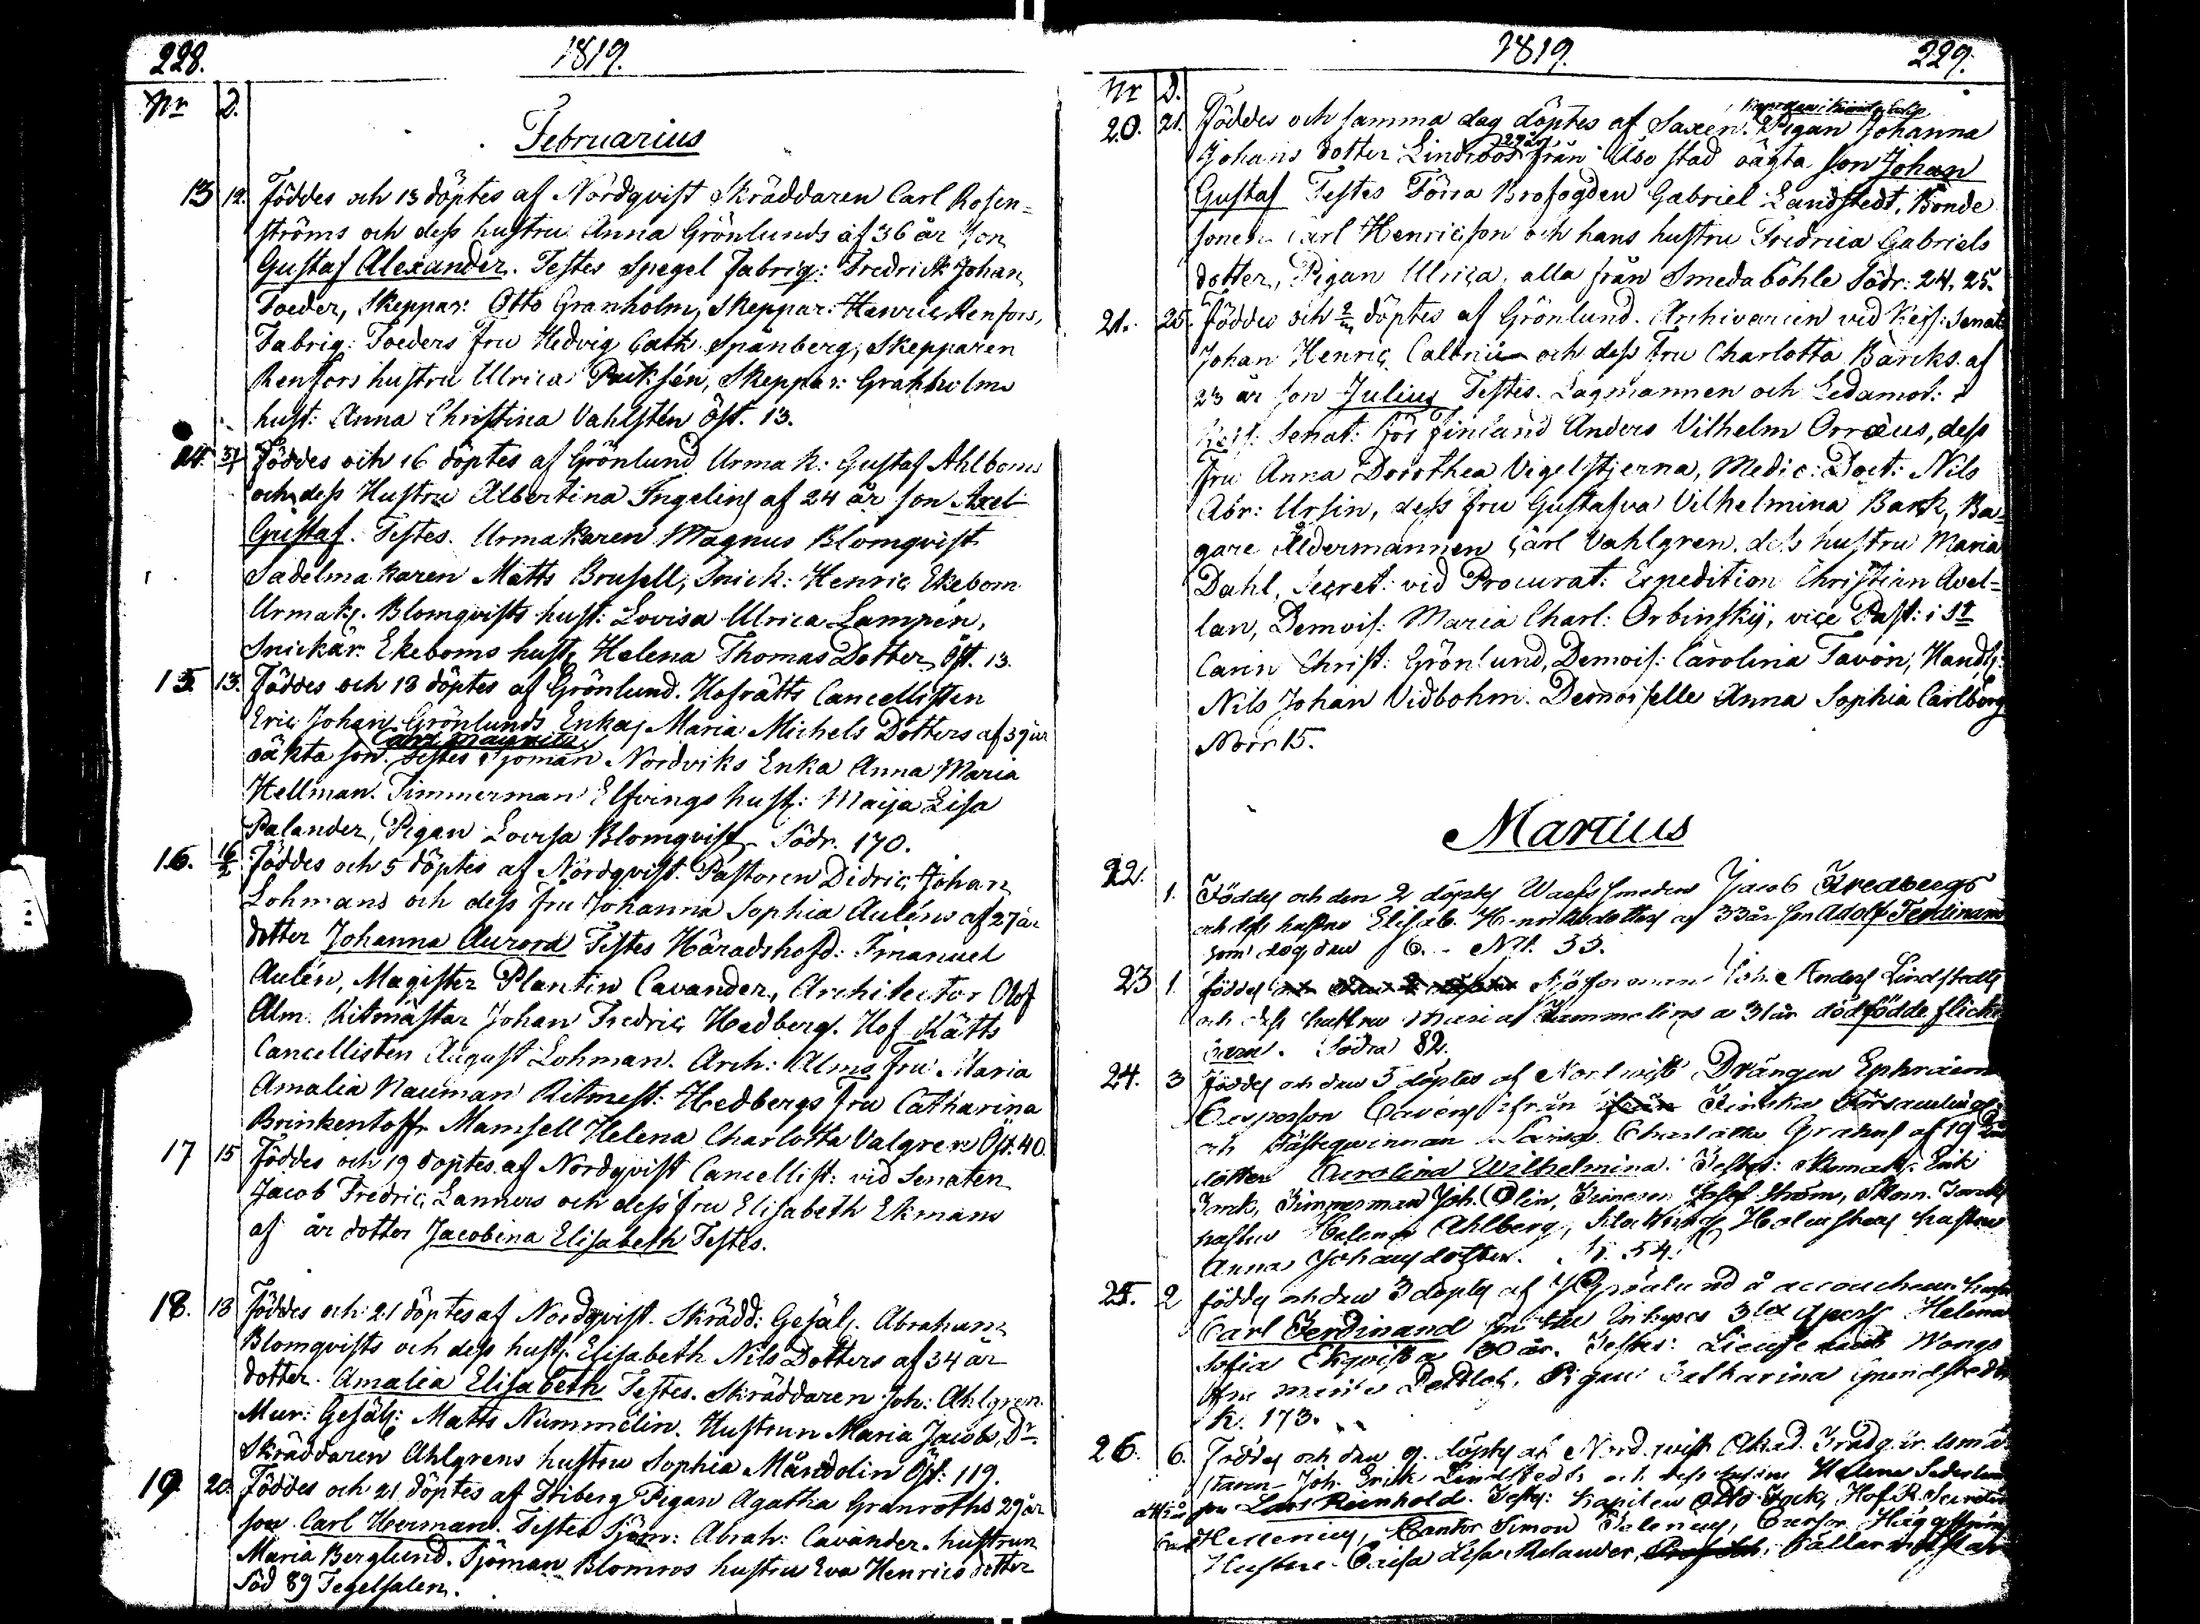 228. 1819.
Nr D.
Februarius
13 12. Föddes och 13 döptes af Nordqvist Skräddaren Carl Rosen=
ströms och dess hustru Anna Grönlunds af 36 år Son
Gustaf Alexander. Testes Spegel fabriq: Fredrick Johan
Toeder, Skeppar: Otto Granholm, Skeppar: Henric Renfors,
Fabriq: Toeders fru Hedvig Cath. Spanberg, Skepparen
Renfors hustru Ulrica Paiksén, Skeppar: Granholms
hust: Anna Christina Vahlstén Öst. 13.
14. Föddes och 16 döptes af Grönlund Urmak: Gustaf Ahlboms
och dess Hustru Albertina Ingelins af 24 år son Axel
Gustaf. Testes. Urmakaren Magnus Blomqvist
Sadelmakaren Matts Brusell, Snick: Henric Ekebom
Urmak: Blomqvists hust: Lovisa Ulrica Lampén,
Snickar: Ekeboms hust: Helena Thomas Dotter, Öst. 13.
15. 13. Föddes och 18 döptes af Grönlund. Hofrätts Cancellisten
Eric Johan Grönlunds Enkas Maria Michels Dotters af 39 år
oäkta son. Carl Magnus Testes Sjöman Nordviks Enka Anna Maria
Hellman. Timmerman Elfvings hust: Maija Lisa
Palander, Pigan Lovisa Blomqvist Södr. 170.
16. 16/2 Föddes och 5 döptes af Nordqvist. Pastoren Didric Johan
Lohmans och dess fru Johanna Sophia Auléns af 27 år
dotter Johanna Aurora Testes Häradshofd: Imanuel
Aulén, Magister Plantin Cavander, Architector Olof
Alm. Ritmästar Johan Fredric Hedberg. Hof Rätts
Cancellisten August Lohman. Arch: Alms fru Maria
Amalia Nauman Ritmest: Hedbergs fru Catharina
Brinkentoff Mamsell Helena Charlotta Valgren Öst. 40.
17 15 Föddes och 19 döptes af Nordqvist Cancellist: vid Senaten
Jacob Fredric Lanners och dess fru Elisabeth Ekmans
af år dotter Jacobina Elisabeth Testes.
18. 18 Föddes och 21 döptes af Nordqvist. Skrädd: Gesäls. Abraham
Blomqvists och dess hust: Elisabeth Nils Dotters af 34 år
dotter. Amalia Elisabeth Testes. Skräddaren Joh: Ahlgren.
Mur: Gesäls: Matts Nummelin. Hustrun Maria Jacobs Dr.
Skräddaren Ahlgrens hustru Sophia Månddolin Öst: 119.
19. 20. Föddes och 21 döptes af Stiberg Pigan Agatha Granroths 29 år
son Carl Herman. Testes Sjöm: Abrah: Cavander. hustrun
Maria Berglund. Sjöman Blomros hustru Eva Henrics dotter
Söd 89 Tegelsalen.
1819. 229.
Nr D.
20. 21. Föddes och samma dag döptes af Saxén. Pigan Johanna
Johans dotter Lindroos 29 år från Åbo stad oägta son Johan
Gustaf Testes Förra Brofogden Gabriel Landstedt, Bonde
sonen Carl Henricsson och hans hustru Fredrica Gabriels
dotter, Pigan Ulrica, alla från Smedaböhle Södr: 24. 25.
21. 25. Föddes och 2/3 döptes af Grönlund. Archivarien vid Keis: Senat:
Johan Henric Calonii och dess fru Charlotta Barcks af
23 år son Julius Testes. Lagmannen och Ledamot: i
Keis: Senat: för Finland Anders Vilhelm Orræus, dess
fru Anna Dorothea Vigelstjerna, Medic: Doct: Nils
Abr: Ursin, dess fru Gustafva Vilhelmina Bark, Ba=
gare Åldermannen Carl Vahlgren. dess hustru Maria
Dahl, Secret: vid Procurat: Expedition Christian Avel=
lan, Demois: Maria Charl: Orbinskij, vice Past: i St
Carin Christ: Grönlund, Demois: Carolina Tavon, Handl:
Nils Johan Vidbohm. Demoiselle Anna Sophia Carlborg
Norr 15.
Martius
22. 1. Föddes och den 2 döptes Jacob Kredbergs
och dess hustru Elisab. Henricsdotters af 33 år son Adolf Ferdinand
som dog den 6. 55.
23 1. föddes Joh. Anders Lindstedts
och dess hustru Maria Nummelins a 31 år dödfödde flicke
barn. Södra 82.
24. 3 Föddes och den 5 döptes af Nordqvist Drängen Ephraim
Caspersson från Finska Församlingen
och Fästeqvinnan Lovisa Charlotta af 19 år
dotter Carolina Wilhelmina. Testes: Skomak: Erik
Timmerman Joh. Olin, Josef Ström,
hustru Helena Ahlberg, hustru
Anna Johansdotter. 54.
25. 2 föddes och den 3 döptes af Grönlund
Carl Ferdinand son Helena
Sofia Ekqvist a 30 år. Testes: Lieutenant
fru Maria Pigan Catharina
K. 173.
26. 6. Föddes och den 9. döptes af Nordqvist Akad.
Joh. Erik Lindstedts och dess hustru
son Lars Reinhold. Testes: Kapiten Otto Hof R.
Hellenius, Cantor Simon
Hustru Caisa Lisa